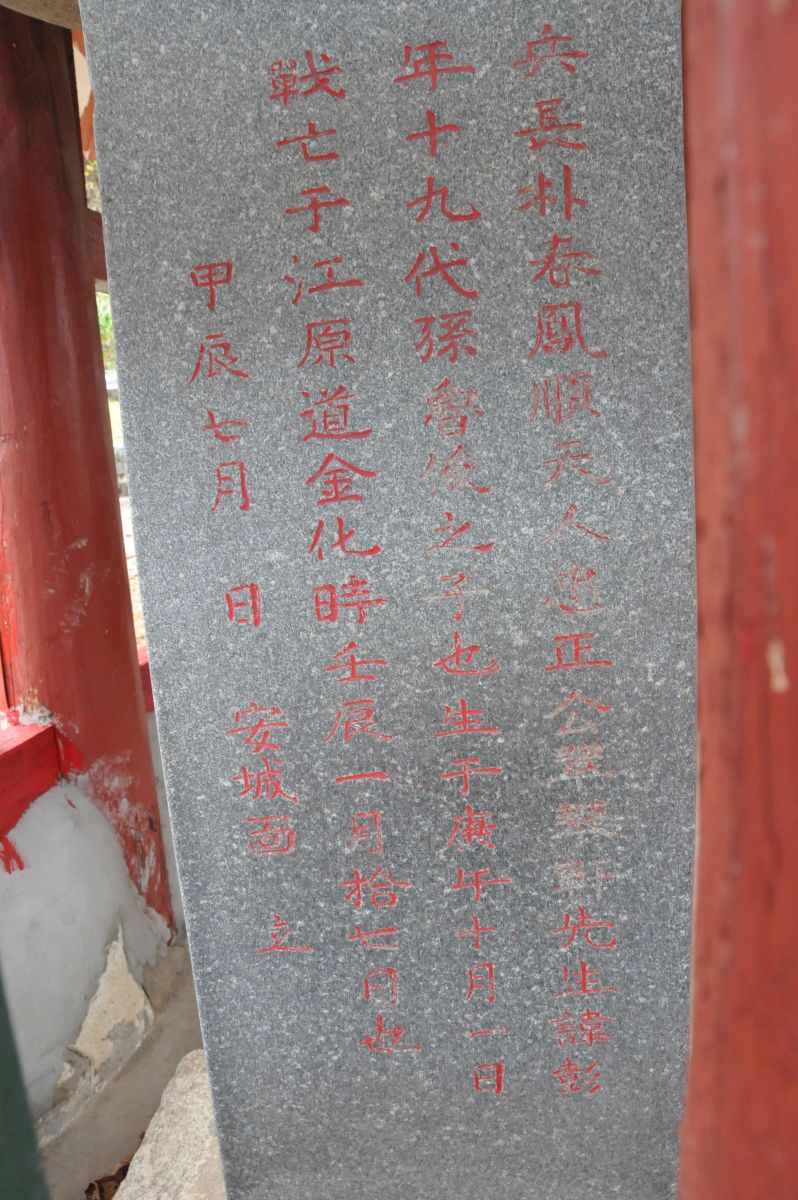 兵長朴春鳳順天人忠正公翠琴軒先生諱彭
年十九代孫魯俊之子也生于庚午十月一日
戰亡于江原道金化時壬辰一月拾七日也
甲辰七月 日 安城面 立